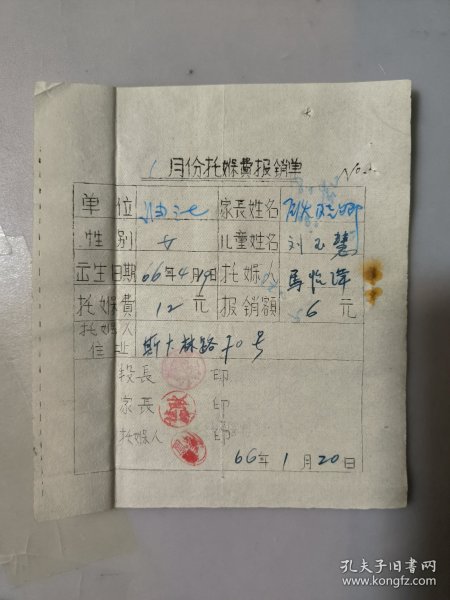 1月份托娒費报銷单
No.
单位 家長姓名
性别 女 儿童姓名 刘玉慧
出生日期 66年4月19日 托娒人 馬怡萍
托娒費 12元 报銷額 6元
托娒人
住址 斯大林路70号
段長 印
家長 印
托娒人 印
66年1月20日
孔夫子旧书网
www.kongfz.com